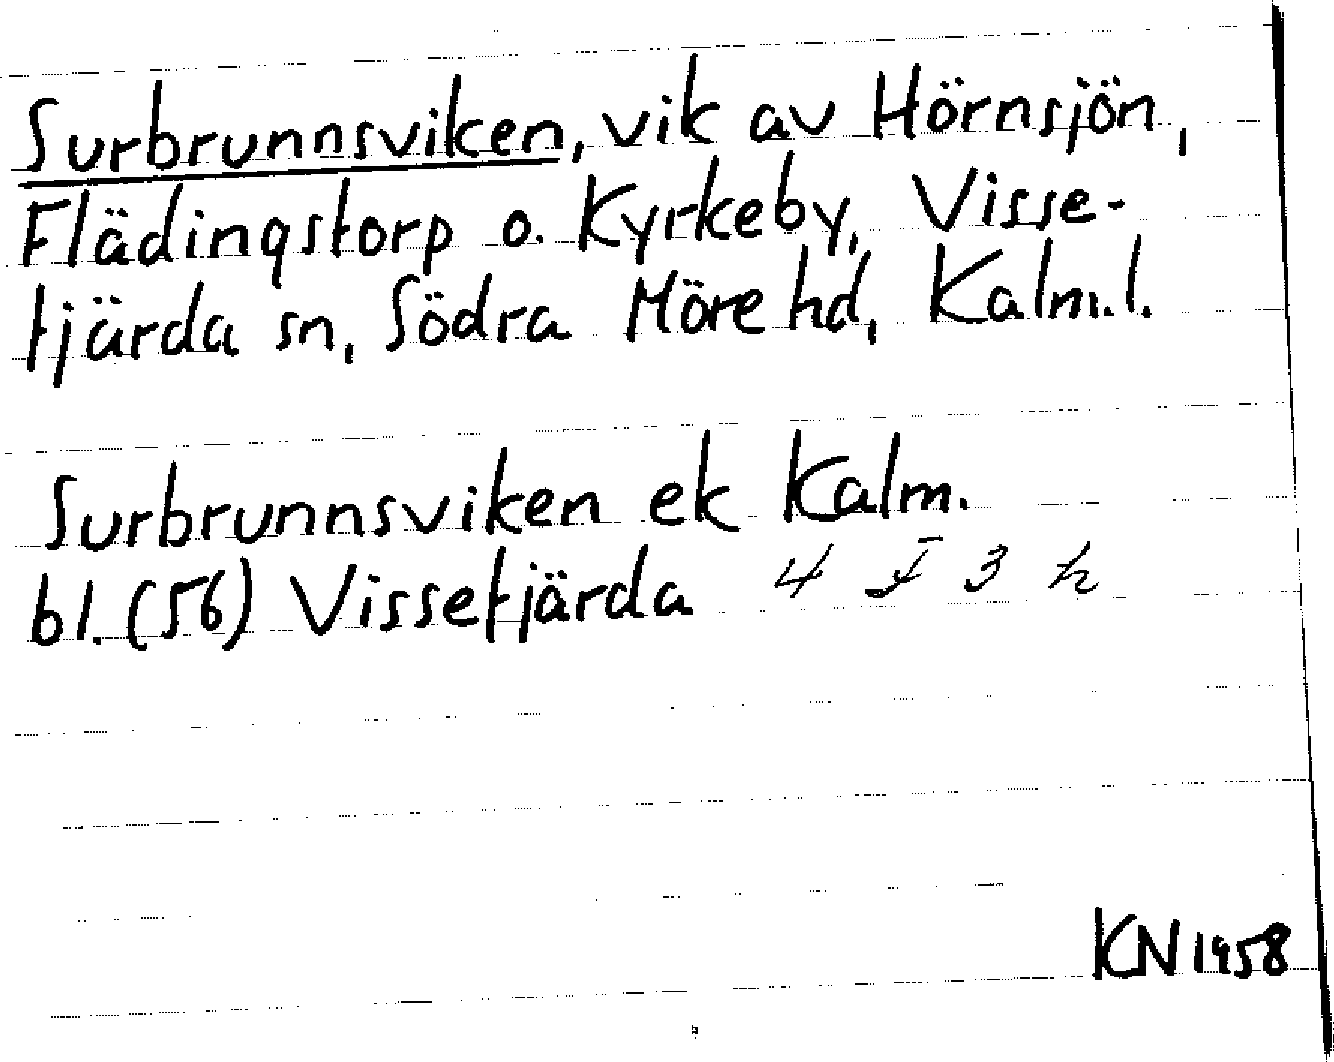 Surbrunnsviken, vik av Hörnsjön,
Flädingstorp o. Kyrkeby, Visse-
fjärda sn, Södra Möre hd, Kalm.l.
Surbrunnsviken ek Kalm.
bl. (56) Vissefjärda 4 I 3 h
KN 1958